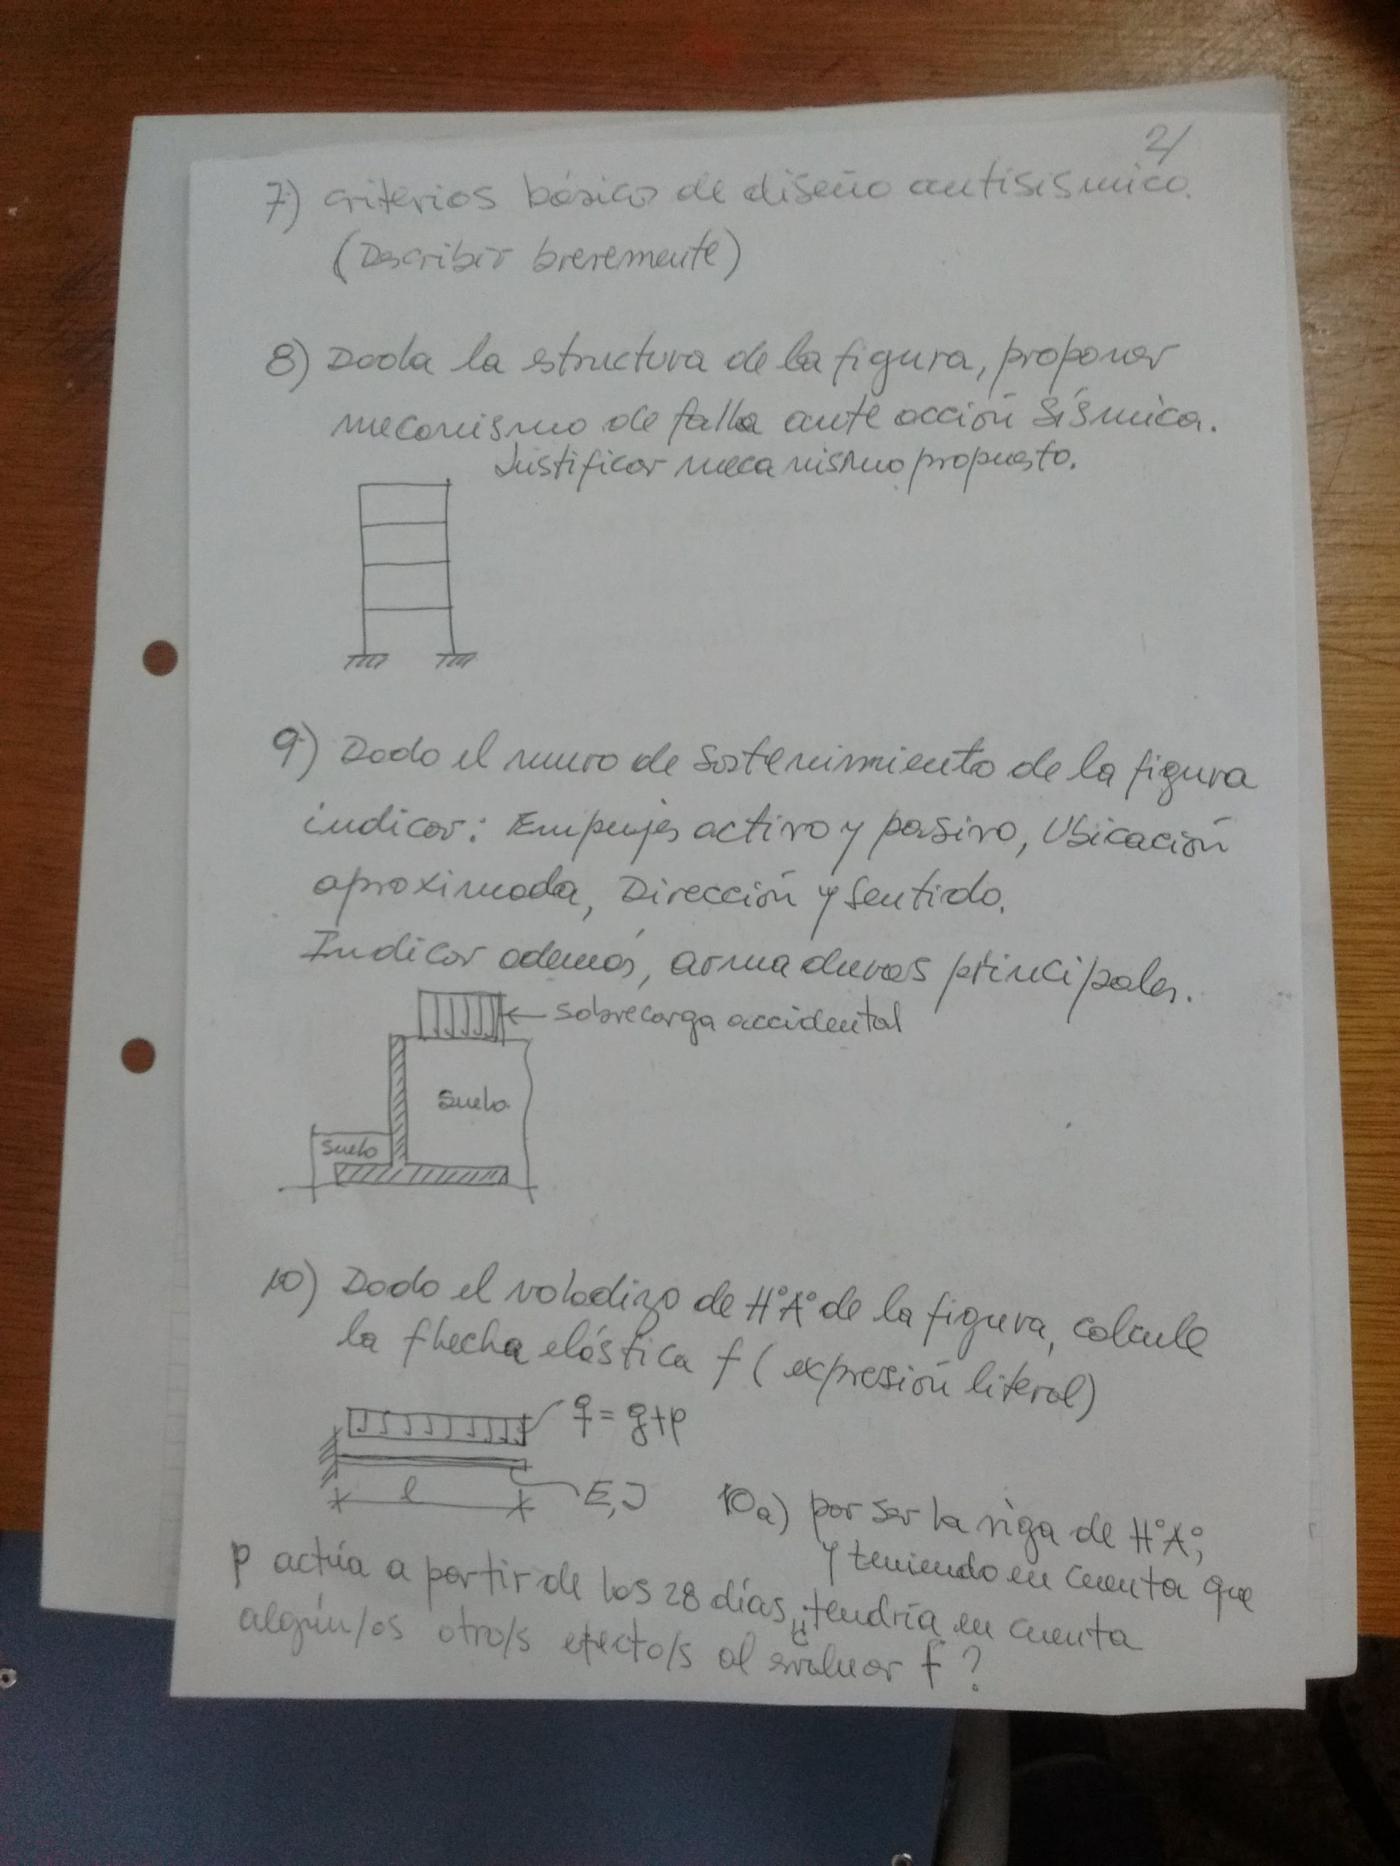 2/
7) criterios básicos de diseño antisísmico.
(Describir brevemente)
8) Dada la estructura de la figura, proponer
mecanismo de falla ante acción sísmica.
Justificar mecanismo propuesto.
9) Dado el muro de sostenimiento de la figura
indicar: Empujes activo y pasivo, Ubicación
aproximada, Dirección y sentido.
Indicar además, armaduras principales.
sobrecarga accidental
suelo
suelo
10) Dado el voladizo de H°A° de la figura, calcule
la flecha elástica f (expresión literal)
q = g+p
l
E, J
10a) por ser la viga de H°A°,
y teniendo en cuenta que
p actúa a partir de los 28 días, ¿tendría en cuenta
algún/os otro/s efecto/s al evaluar f?